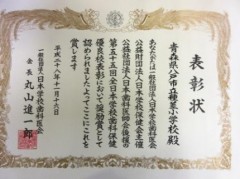 表彰状
青森県八戸市立種差小学校殿
あなたは一般社団法人日本学校歯科医会
公益財団法人日本学校保健会主催
公益社団法人日本歯科医師会後援の
第五十五回全日本学校歯科保健
優良校表彰において奨励賞と
認められましたよってここにこれを
賞します
平成二十八年十月十六日
一般社団法人日本学校歯科医会
会長 丸山進一郎